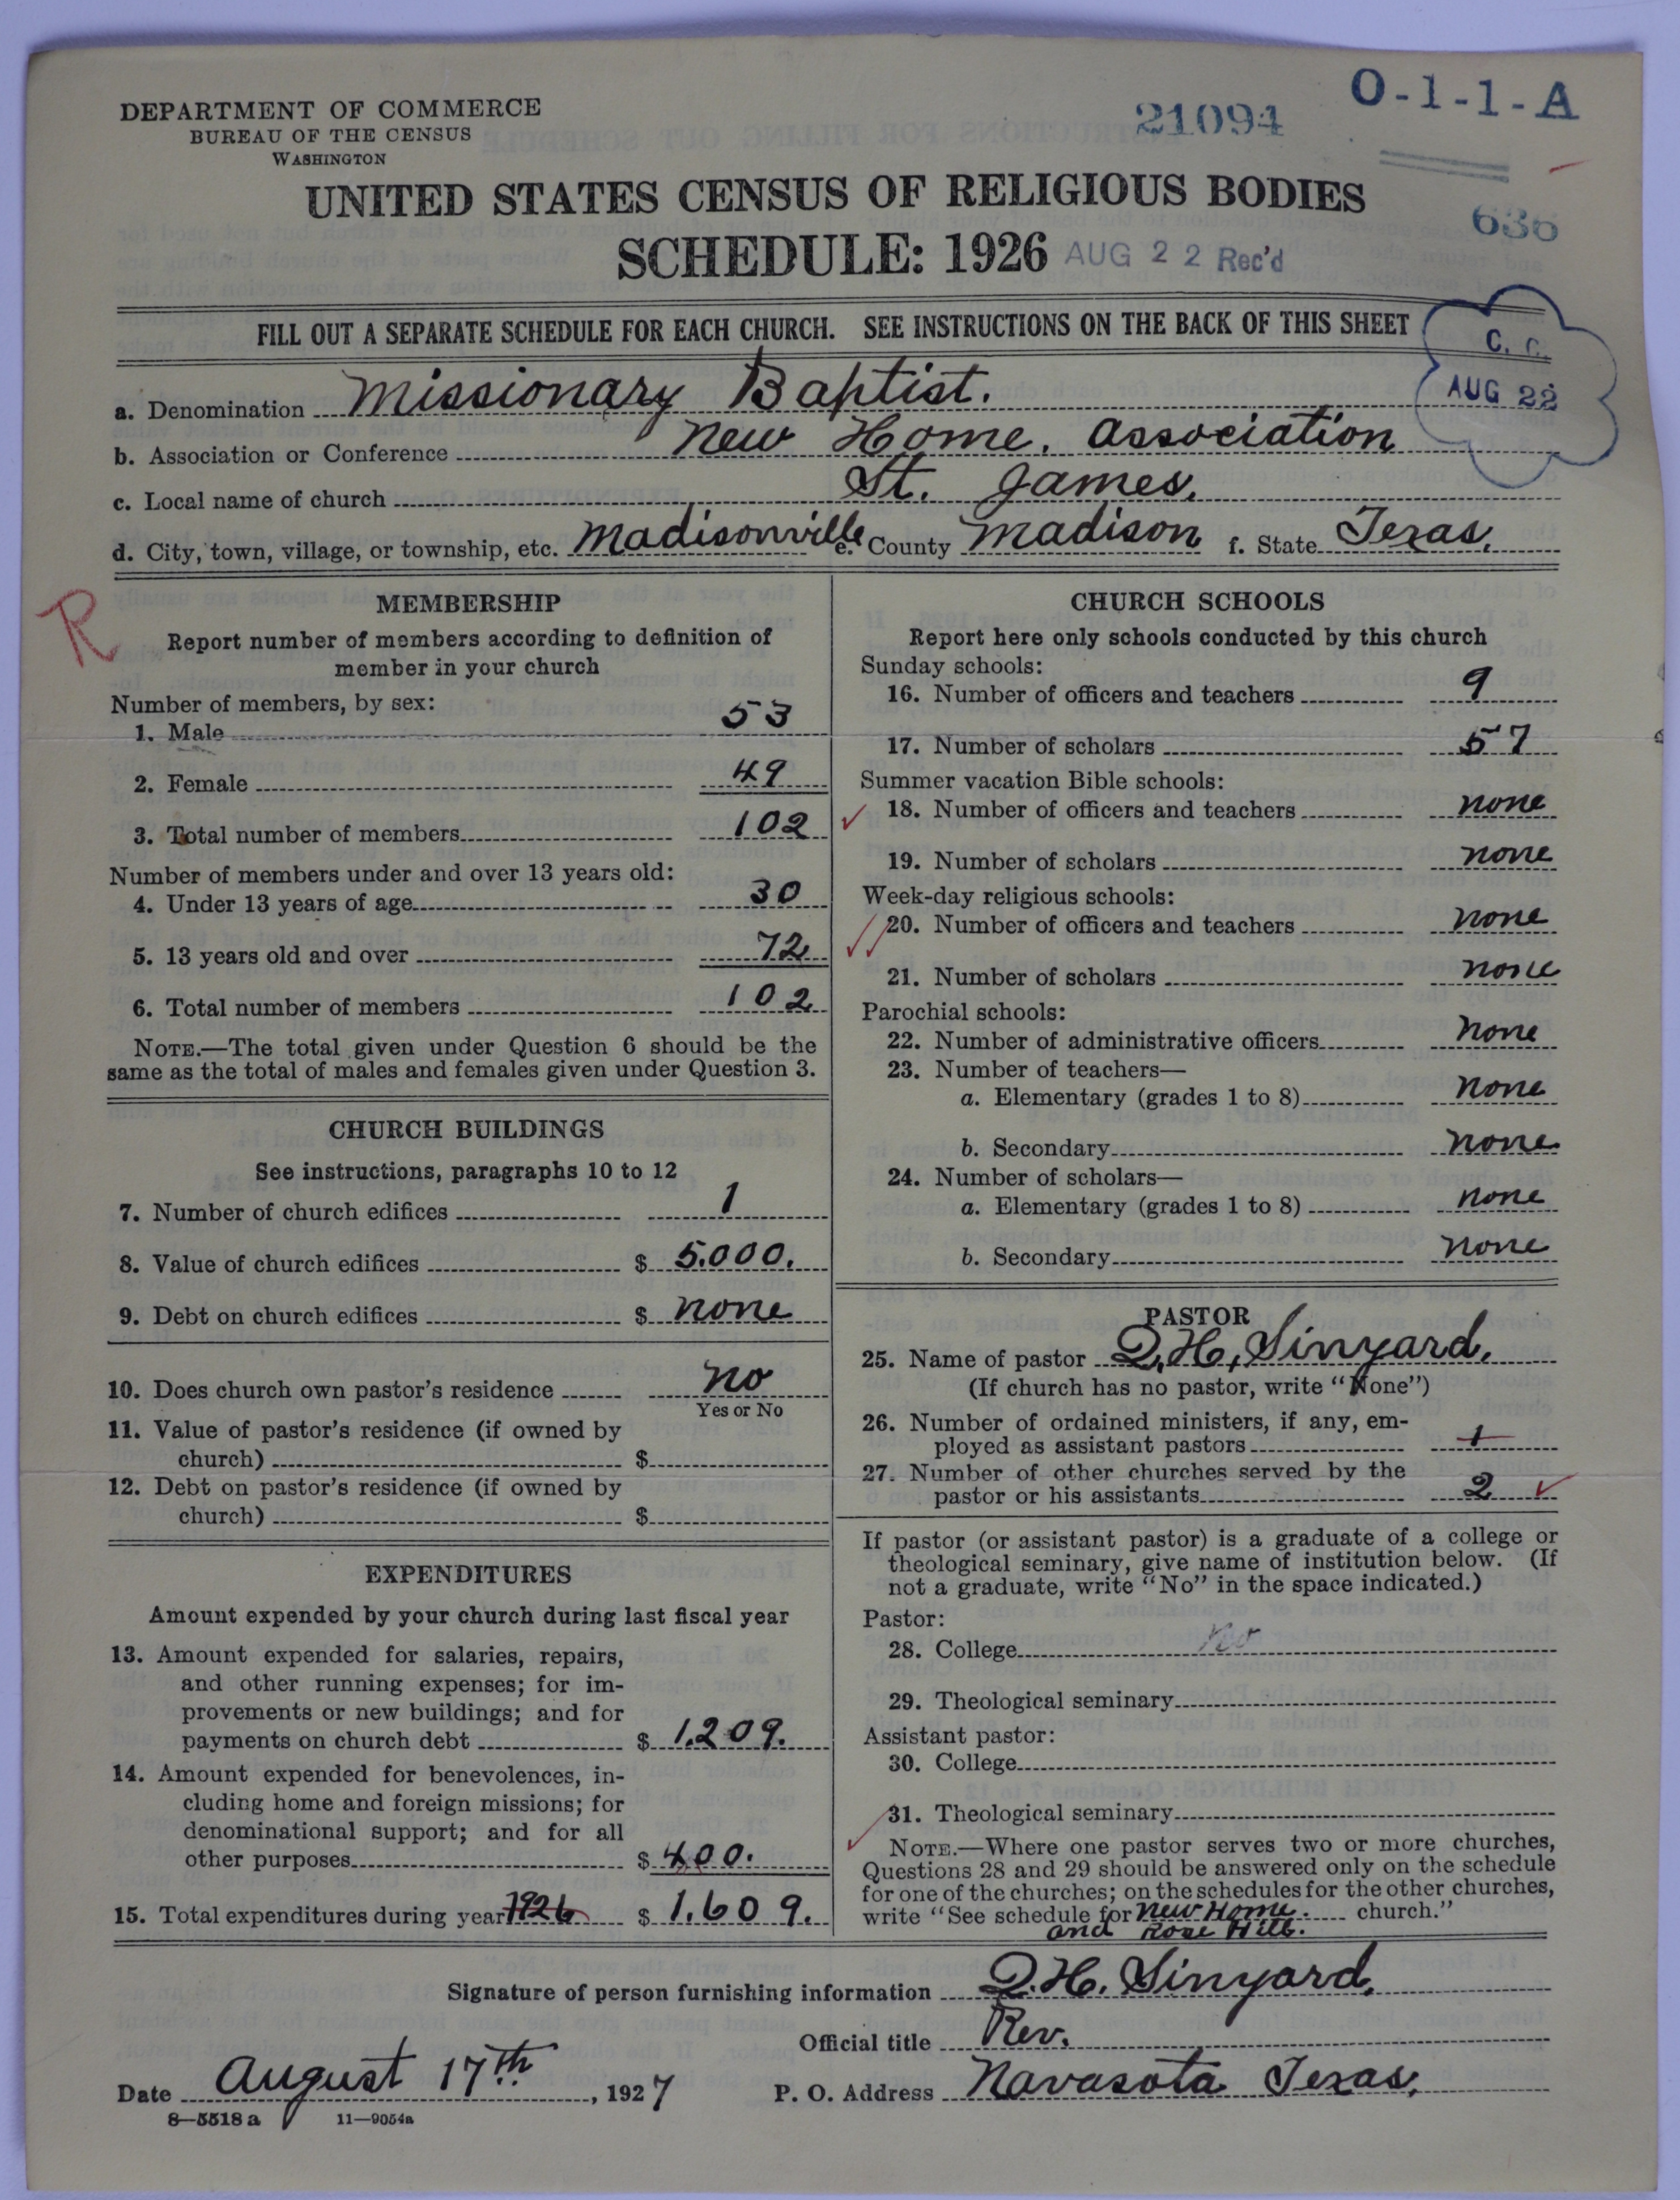 DEPARTMENT OF COMMERCE
BUREAU OF THE CENSUS
WASHINGTON
21094
O-1-1-A
UNITED STATES CENSUS OF RELIGIOUS BODIES
636
SCHEDULE: 1926 AUG 22 Rec'd
FILL OUT A SEPARATE SCHEDULE FOR EACH CHURCH. SEE INSTRUCTIONS ON THE BACK OF THIS SHEET
C. C.
AUG 22
a. Denomination Missionary Baptist.
b. Association or Conference New Home. Association
c. Local name of church St. James.
d. City, town, village, or township, etc. Madisonville e. County Madison f. State Texas.
R
MEMBERSHIP
Report number of members according to definition of
member in your church
Number of members, by sex:
1. Male 53
2. Female 49
3. Total number of members 102
Number of members under and over 13 years old:
4. Under 13 years of age 30
5. 13 years old and over 72
6. Total number of members 102
NOTE.—The total given under Question 6 should be the
same as the total of males and females given under Question 3.
CHURCH BUILDINGS
See instructions, paragraphs 10 to 12
7. Number of church edifices 1
8. Value of church edifices $ 5.000.
9. Debt on church edifices $ none
10. Does church own pastor's residence no
Yes or No
11. Value of pastor's residence (if owned by
church) $
12. Debt on pastor's residence (if owned by
church) $
EXPENDITURES
Amount expended by your church during last fiscal year
13. Amount expended for salaries, repairs,
and other running expenses; for im-
provements or new buildings; and for
payments on church debt $ 1.209.
14. Amount expended for benevolences, in-
cluding home and foreign missions; for
denominational support; and for all
other purposes $ 400.
15. Total expenditures during year 1926 $ 1.609.
CHURCH SCHOOLS
Report here only schools conducted by this church
Sunday schools:
16. Number of officers and teachers 9
17. Number of scholars 57
Summer vacation Bible schools:
18. Number of officers and teachers none
19. Number of scholars none
Week-day religious schools:
20. Number of officers and teachers none
21. Number of scholars none
Parochial schools:
22. Number of administrative officers none
23. Number of teachers—
a. Elementary (grades 1 to 8) none
b. Secondary none
24. Number of scholars—
a. Elementary (grades 1 to 8) none
b. Secondary none
PASTOR
25. Name of pastor Q.H. Sinyard.
(If church has no pastor, write "None")
26. Number of ordained ministers, if any, em-
ployed as assistant pastors 1
27. Number of other churches served by the
pastor or his assistants 2
If pastor (or assistant pastor) is a graduate of a college or
theological seminary, give name of institution below. (If
not a graduate, write "No" in the space indicated.)
Pastor:
28. College no
29. Theological seminary
Assistant pastor:
30. College
31. Theological seminary
NOTE.—Where one pastor serves two or more churches,
Questions 28 and 29 should be answered only on the schedule
for one of the churches; on the schedules for the other churches,
write "See schedule for New Home. church."
and Rose Hill.
Signature of person furnishing information Q.H. Sinyard.
Official title Rev.
Date August 17th, 1927 P. O. Address Navasota Texas.
8—5518 a 11—9054a